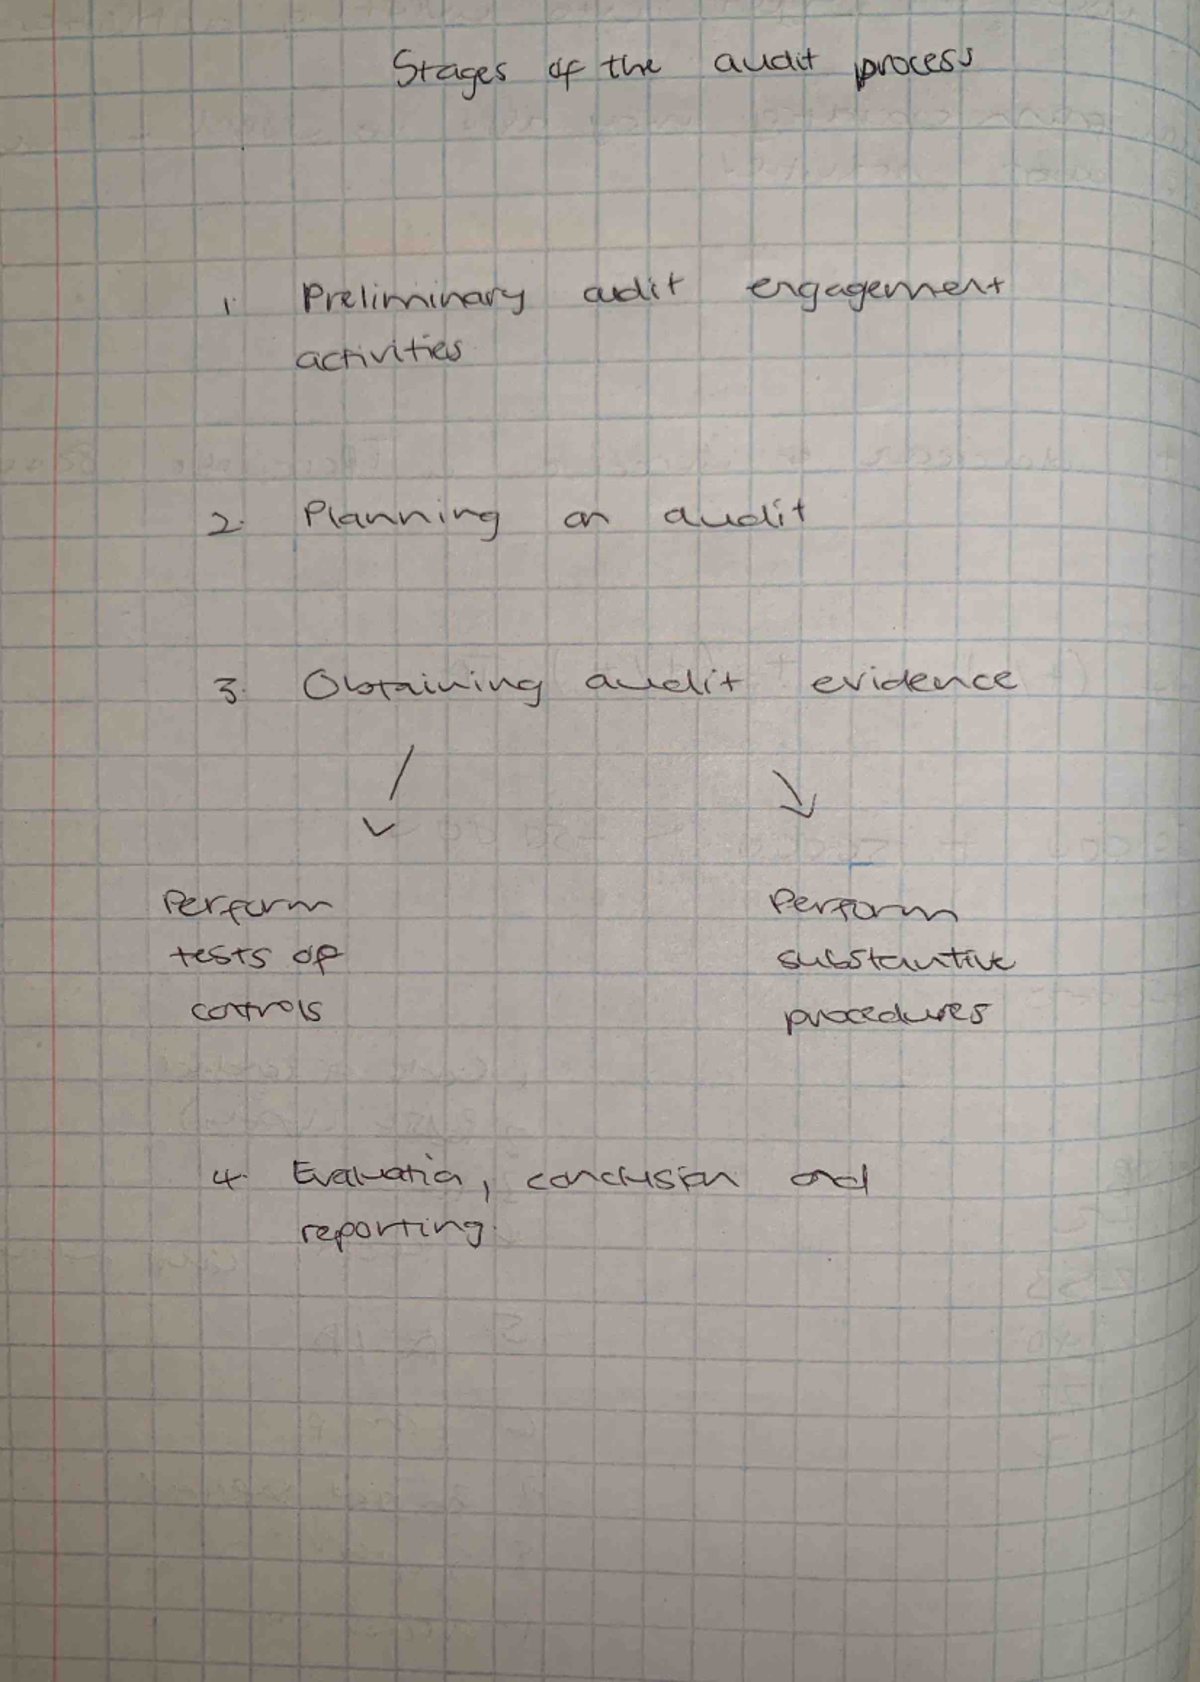 Stages of the audit process
1. Preliminary audit engagement
activities
2. Planning an audit
3. Obtaining audit evidence
Perform
tests of
controls
Perform
substantive
procedures
4. Evaluation, conclusion and
reporting.